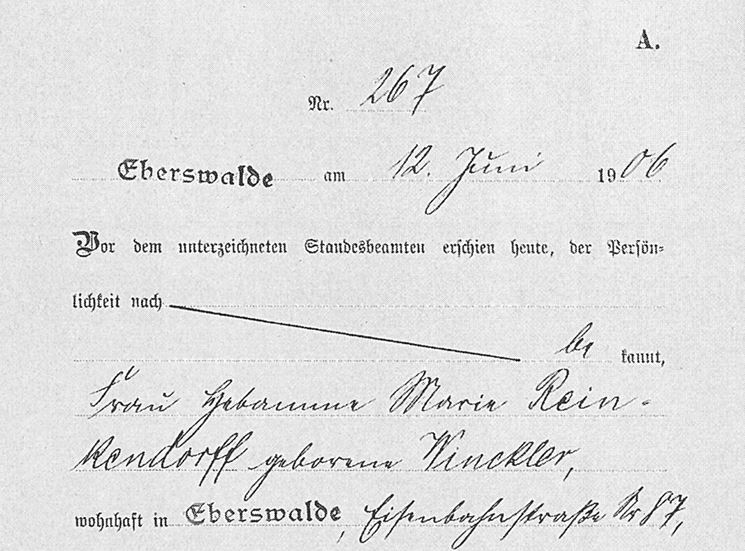 A.
Nr. 267
Eberswalde am 12. Juni 1906
Vor dem unterzeichneten Standesbeamten erschien heute, der Persön-
lichkeit nach
be kannt,
Frau Hebamme Marie Rein-
kendorff geborene Winckler,
wohnhaft in Eberswalde, Eisenbahnstraße Nr 87,